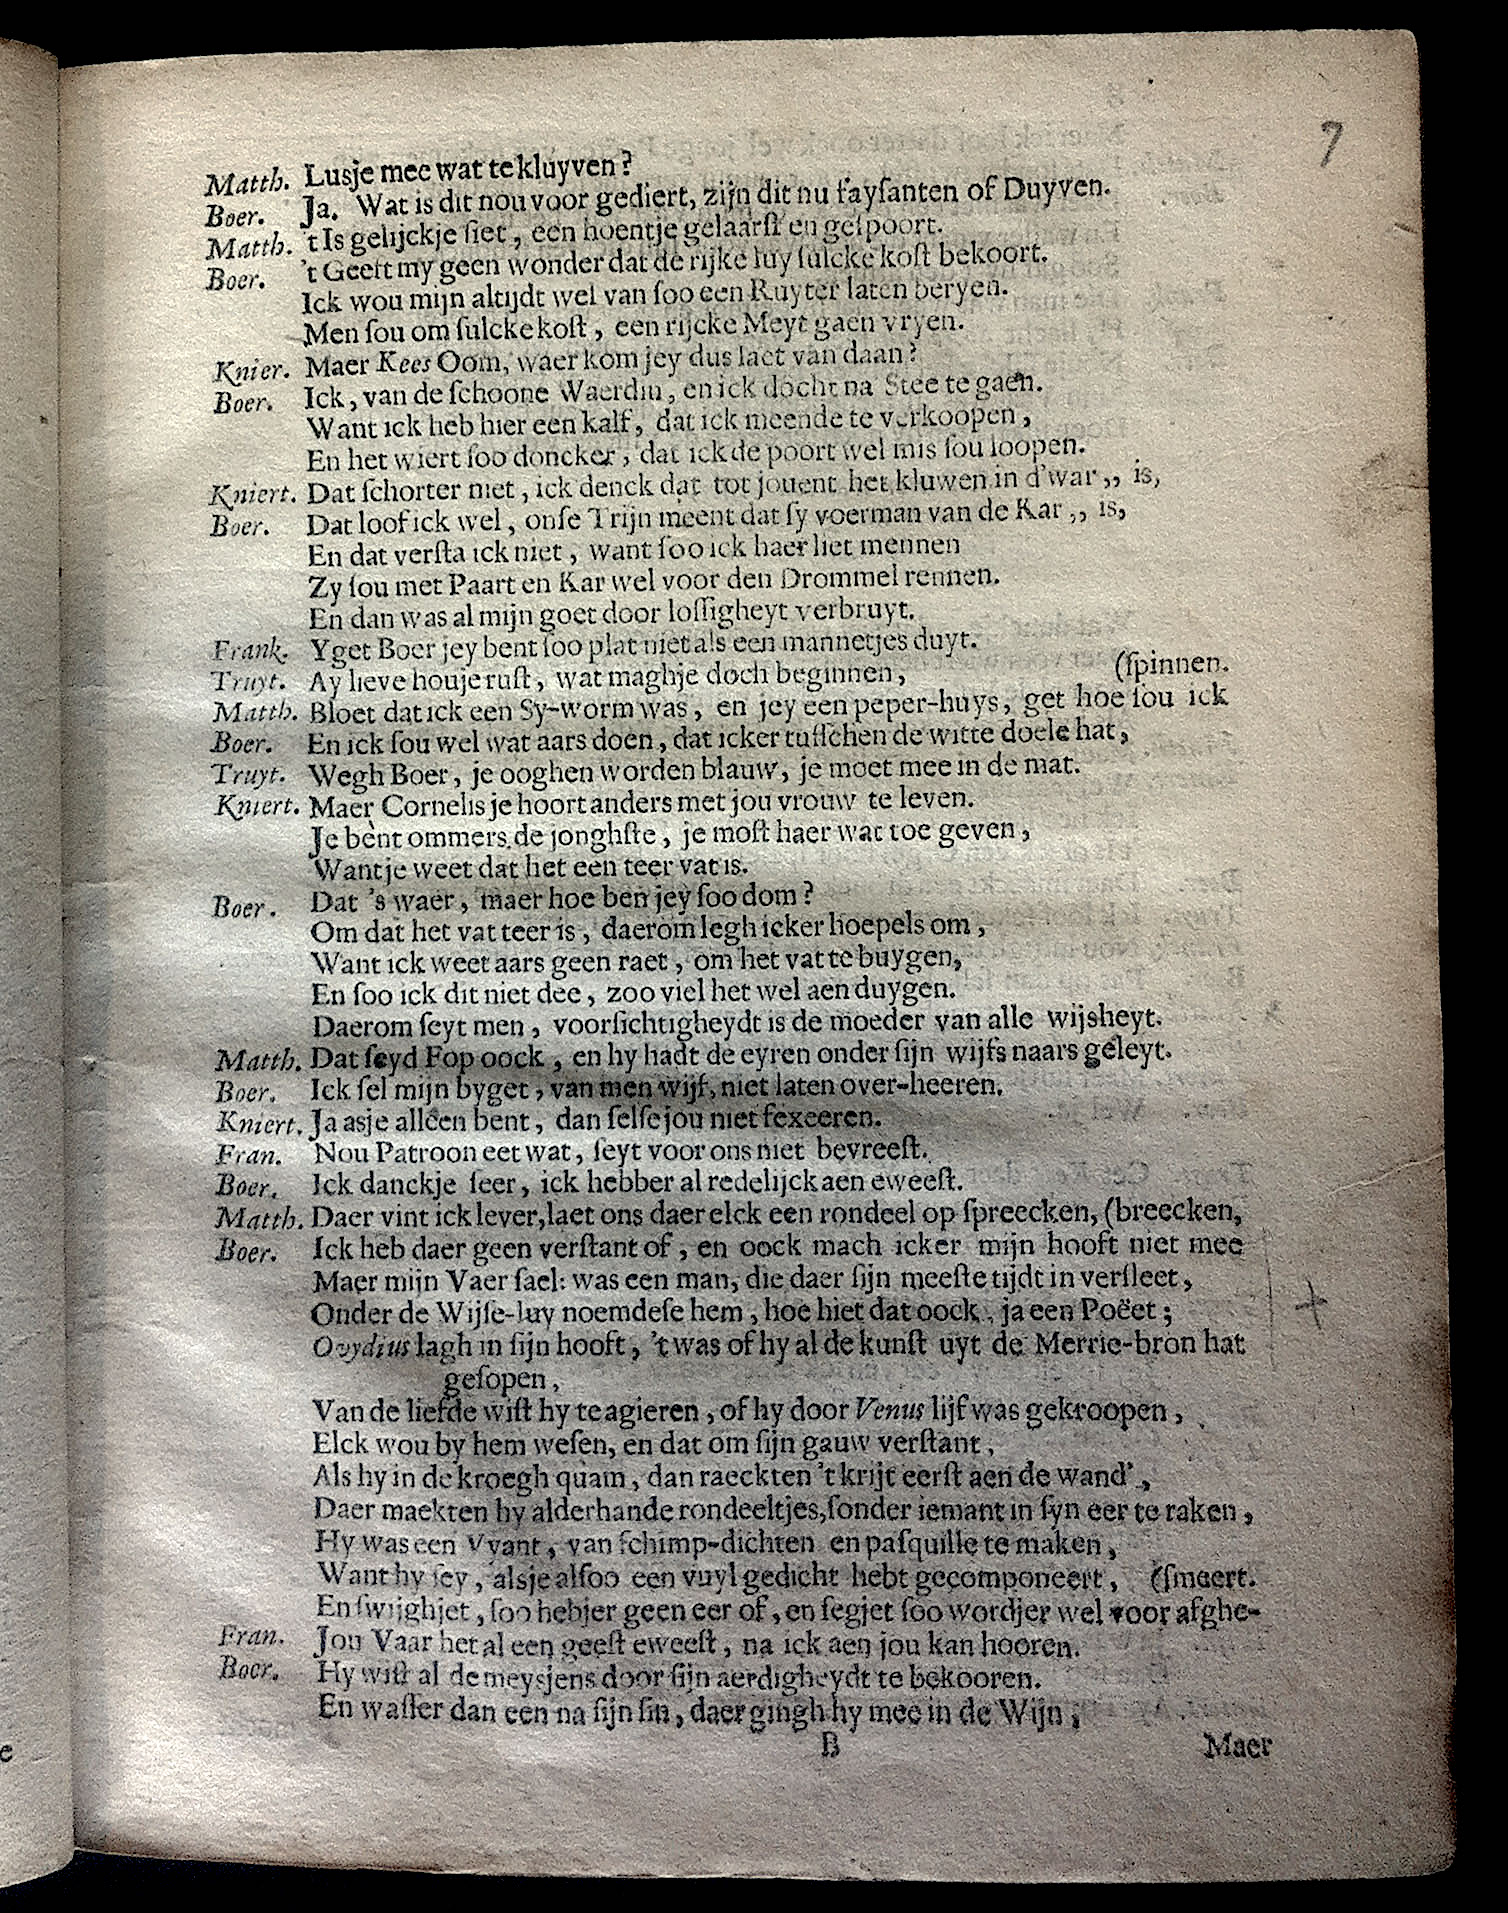 7
Matth. Lusje mee wat te kluyven?
Boer. Ja. Wat is dit nou voor gediert, zijn dit nu fayſanten of Duyven.
Matth. 't Is gelijckje ſiet, een hoentje gelaarſt en geſpoort.
Boer. 't Geeft my geen wonder dat de rijke luy ſulcke koſt bekoort.
Ick wou mijn altijdt wel van ſoo een Ruyter laten beryen.
Men ſou om ſulcke koſt, een rijcke Meyt gaen vryen.
Knier. Maer Kees Oom, waer kom jey dus laet van daan?
Boer. Ick, van de ſchoone Waerdin, en ick docht na Stee te gaen.
Want ick heb hier een kalf, dat ick meende te verkoopen,
En het wiert ſoo doncker, dat ick de poort wel mis ſou loopen.
Kniert. Dat ſchorter niet, ick denck dat tot jouent het kluwen in d'war ,, is,
Boer. Dat loof ick wel, onſe Trijn meent dat ſy voerman van de Kar ,, is,
En dat verſta ick niet, want ſoo ick haer liet mennen
Zy ſou met Paart en Kar wel voor den Drommel rennen.
En dan was al mijn goet door loſſigheyt verbruyt.
Frank. Yget Boer jey bent ſoo plat niet als een mannetjes duyt.
Truyt. Ay lieve houje ruſt, wat maghje doch beginnen, (ſpinnen.
Matth. Bloet dat ick een Sy-worm was, en jey een peper-huys, get hoe ſou ick
Boer. En ick ſou wel wat aars doen, dat icker tuſſchen de witte doele hat,
Truyt. Wegh Boer, je ooghen worden blauw, je moet mee in de mat.
Kniert. Maer Cornelis je hoort anders met jou vrouw te leven.
Je bent ommers de jonghſte, je moſt haer wat toe geven,
Want je weet dat het een teer vat is.
Boer. Dat 's waer, maer hoe ben jey ſoo dom?
Om dat het vat teer is, daerom legh icker hoepels om,
Want ick weet aars geen raet, om het vat te buygen,
En ſoo ick dit niet dee, zoo viel het wel aen duygen.
Daerom ſeyt men, voorſichtigheydt is de moeder van alle wijsheyt.
Matth. Dat ſeyd Fop oock, en hy hadt de eyren onder ſijn wijfs naars geleyt.
Boer. Ick ſel mijn byget, van men wijf, niet laten over-heeren.
Kniert. Ja asje alleen bent, dan ſelſe jou niet fexeeren.
Fran. Nou Patroon eet wat, ſeyt voor ons niet bevreeſt.
Boer. Ick danckje ſeer, ick hebber al redelijck aen eweeſt.
Matth. Daer vint ick lever, laet ons daer elck een rondeel op ſpreecken, (breecken,
Boer. Ick heb daer geen verſtant of, en oock mach icker mijn hooft niet mee
Maer mijn Vaer ſael: was een man, die daer ſijn meeſte tijdt in verſleet,
Onder de Wijſe-luy noemdeſe hem, hoe hiet dat oock, ja een Poëet;
Ovydius lagh in ſijn hooft, 't was of hy al de kunſt uyt de Merrie-bron hat
geſopen,
Van de liefde wiſt hy te agieren, of hy door Venus lijf was gekroopen,
Elck wou by hem weſen, en dat om ſijn gauw verſtant,
Als hy in de kroegh quam, dan raeckten 't krijt eerſt aen de wand',
Daer maekten hy alderhande rondeeltjes, ſonder iemant in ſyn eer te raken,
Hy was een Vyant, van ſchimp-dichten en paſquille te maken,
Want hy ſey, alsje alſoo een vuyl gedicht hebt gecomponeert, (ſmeert.
En ſwijghjet, ſoo hebjer geen eer of, en ſegjet ſoo wordjer wel voor afghe-
Fran. Jou Vaar het al een geeſt eweeſt, na ick aen jou kan hooren.
Boer. Hy wiſt al de meysjens door ſijn aerdigheydt te bekooren.
En waſſer dan een na ſijn ſin, daer gingh hy mee in de Wijn,
B Maer